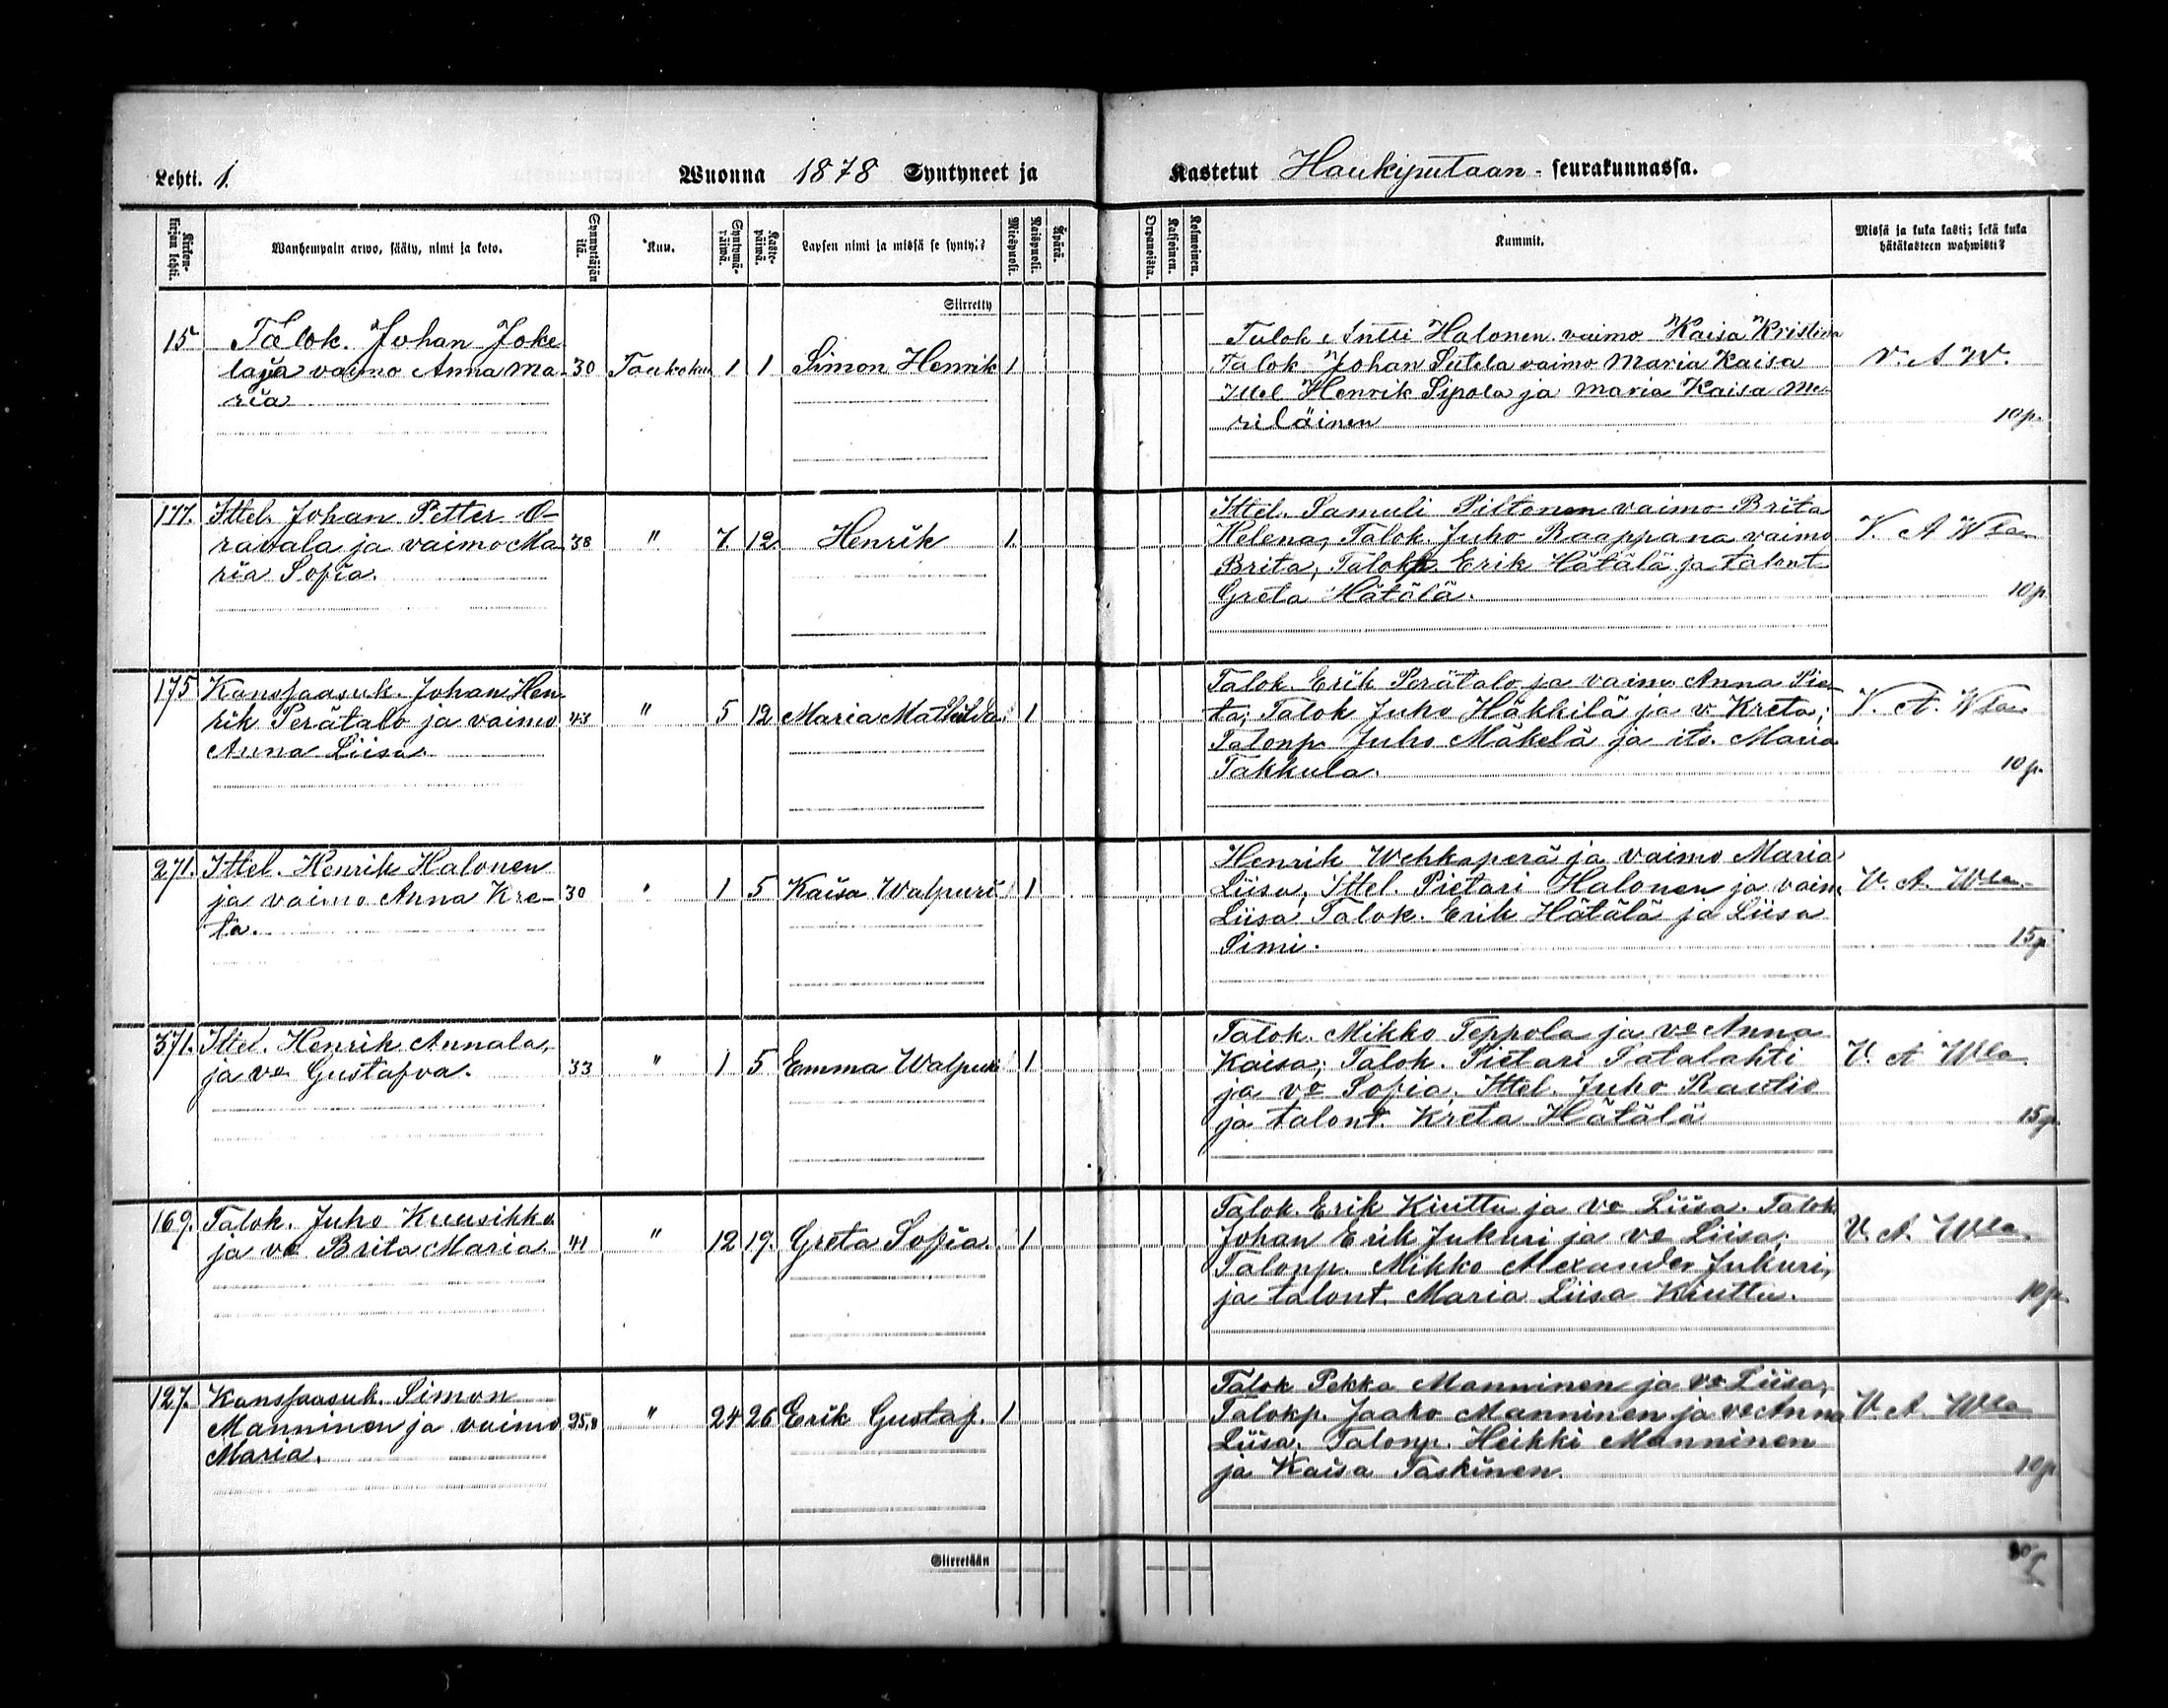 Lehti. 1. Wuonna 1878 Syntyneet ja Kastetut Haukiputaan- seurakunnassa.
Kirkon-kirjan lehti. Wanhempain arwo, sääty, nimi ja koto. Synnyttäjän ikä. Kuu. Syntymä-päiwä. Kaste-päiwä. Lapsen nimi ja missä se syntyi? Miespuoli. Naispuoli. Äpärä. Orpanoista. Kaksoinen. Kolmoinen. Kummit. Missä ja kuka kasti; sekä kuka hätäkasteen wahwisti?
Siirretty
15 Talok. Johan Joke
la ja vaimo Anna Ma- 30 Toukoku 1 1 Simon Henrik 1
ria
Talok Antti Halonen vaimo Kaisa Kristina
Talok. Johan Sutela vaimo Maria Kaisa V. A W.
Ittel Henrik Sipola ja Maria Kaisa Me-
riläinen 10 p.
177. Ittel. Johan Petter O-
ravala ja vaimo Ma- 38 " 7. 12. Henrik 1.
ria Sofia.
Ittel. Samuli Piltonen vaimo Brita
Helena, Talok. Juho Raappana vaimo V. A Wla
Brita, Talokp. Erik Hätälä ja talont
Greta Hätälä. 10 p.
175 Kansfaasuk. Johan Hen
rik Perätalo ja vaimo 43 " 5 12 Maria Mathilda. 1
Anna Liisa.
Talok. Erik Perätalo ja vaimo Anna Pie-
ta; Talok Juho Häkkilä ja v. Kreta; V. A. Wla
Talonp. Juho Mäkelä ja its. Maria
Takkula. 10 p.
271. Ittel. Henrik Halonen
ja vaimo Anna Kre- 30 " 1 5 Kaisa Walpuri 1
ta.
Henrik Wehkaperä ja vaimo Maria
Liisa, Ittel. Pietari Halonen ja vaim. V. A. Wla
Liisa Talok. Erik Hätälä ja Liisa
Simi. 15 p
371. Ittel. Henrik Annala,
ja vo Gustafva. 33 " 1 5 Emma Walpuri 1
Talok. Mikko Teppola ja vo Anna
Kaisa; Talok. Pietari Patalahti V. A Wla
ja vo Sofia. Ittel. Juho Rautio
ja talont. Kreta Hätälä 15 p.
169. Talok. Juho Kuusikko
ja vo Brita Maria. 41 " 12 19. Greta Sofia. 1
Talok. Erik Kiuttu ja vo Liisa. Talok
Johan Erik Jukuri ja vo Liisa. V. A. Wla.
Talonp. Mikko Alexander Jukuri,
ja talont. Maria Liisa Kiuttu. 10 p.
127. Kansfaasuk. Simon
Manninen ja vaimo 25,8 " 24 26 Erik Gustaf. 1
Maria.
Talok Pekka Manninen ja vo Liisa,
Talokp. Jaako Manninen ja vo Anna V. A. Wla
Liisa; Talonp. Heikki Manninen
ja Kaisa Taskinen. 10 p
Siirretään